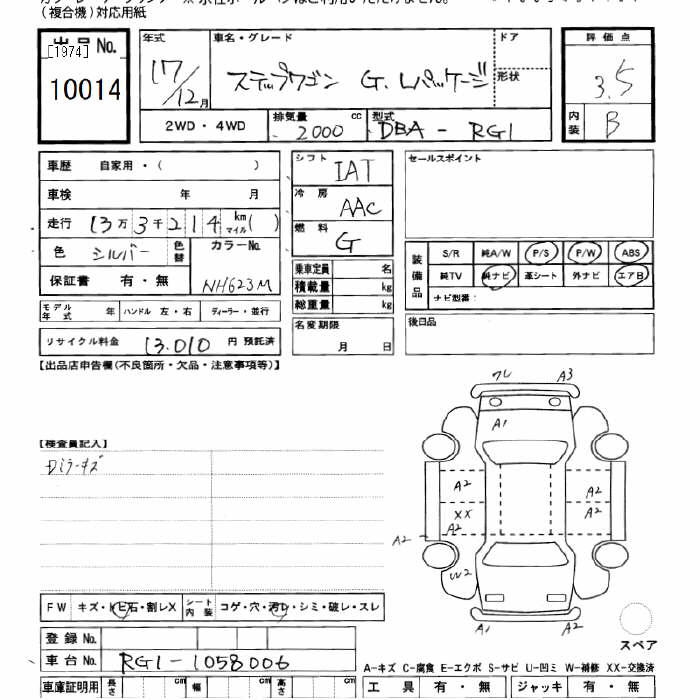 (複合機)対応用紙
出品No. [1974] 10014
年式 17/12月
車名・グレード ステップワゴン G. Lパッケージ
ドア
形状
評価点 3.5
内装 B
2WD・4WD
排気量 2000 cc
型式 DBA - RG1
車歴 自家用・( )
車検 年 月
走行 13万3千214 km マイル( )
色 シルバー 色替
カラーNo. NH623M
保証書 有・無
シフト IAT
冷房 AAC
燃料 G
乗車定員 名
積載量 kg
総重量 kg
セールスポイント
装備品 S/R 純A/W P/S P/W ABS
純TV 純ナビ 革シート 外ナビ エアB
ナビ型番:
モデル年式 年 ハンドル 左・右 ディーラー・並行
名変期限 月 日
後日品
リサイクル料金 13.010 円 預託済
【出品店申告欄(不良箇所・欠品・注意事項等)】
【検査員記入】
ミラーキズ
ワレ A3
A1
A2 A2
XX A2
A2 A2
W2
A1 A2
スペア
FW キズ・トビ石・割レX
シート内装 コゲ・穴・汚レ・シミ・破レ・スレ
登録No.
車台No. RG1-1058006
A-キズ C-腐食 E-エクボ S-サビ U-凹ミ W-補修 XX-交換済
車庫証明用 長さ cm 幅 cm 高さ cm
工具 有・無 ジャッキ 有・無